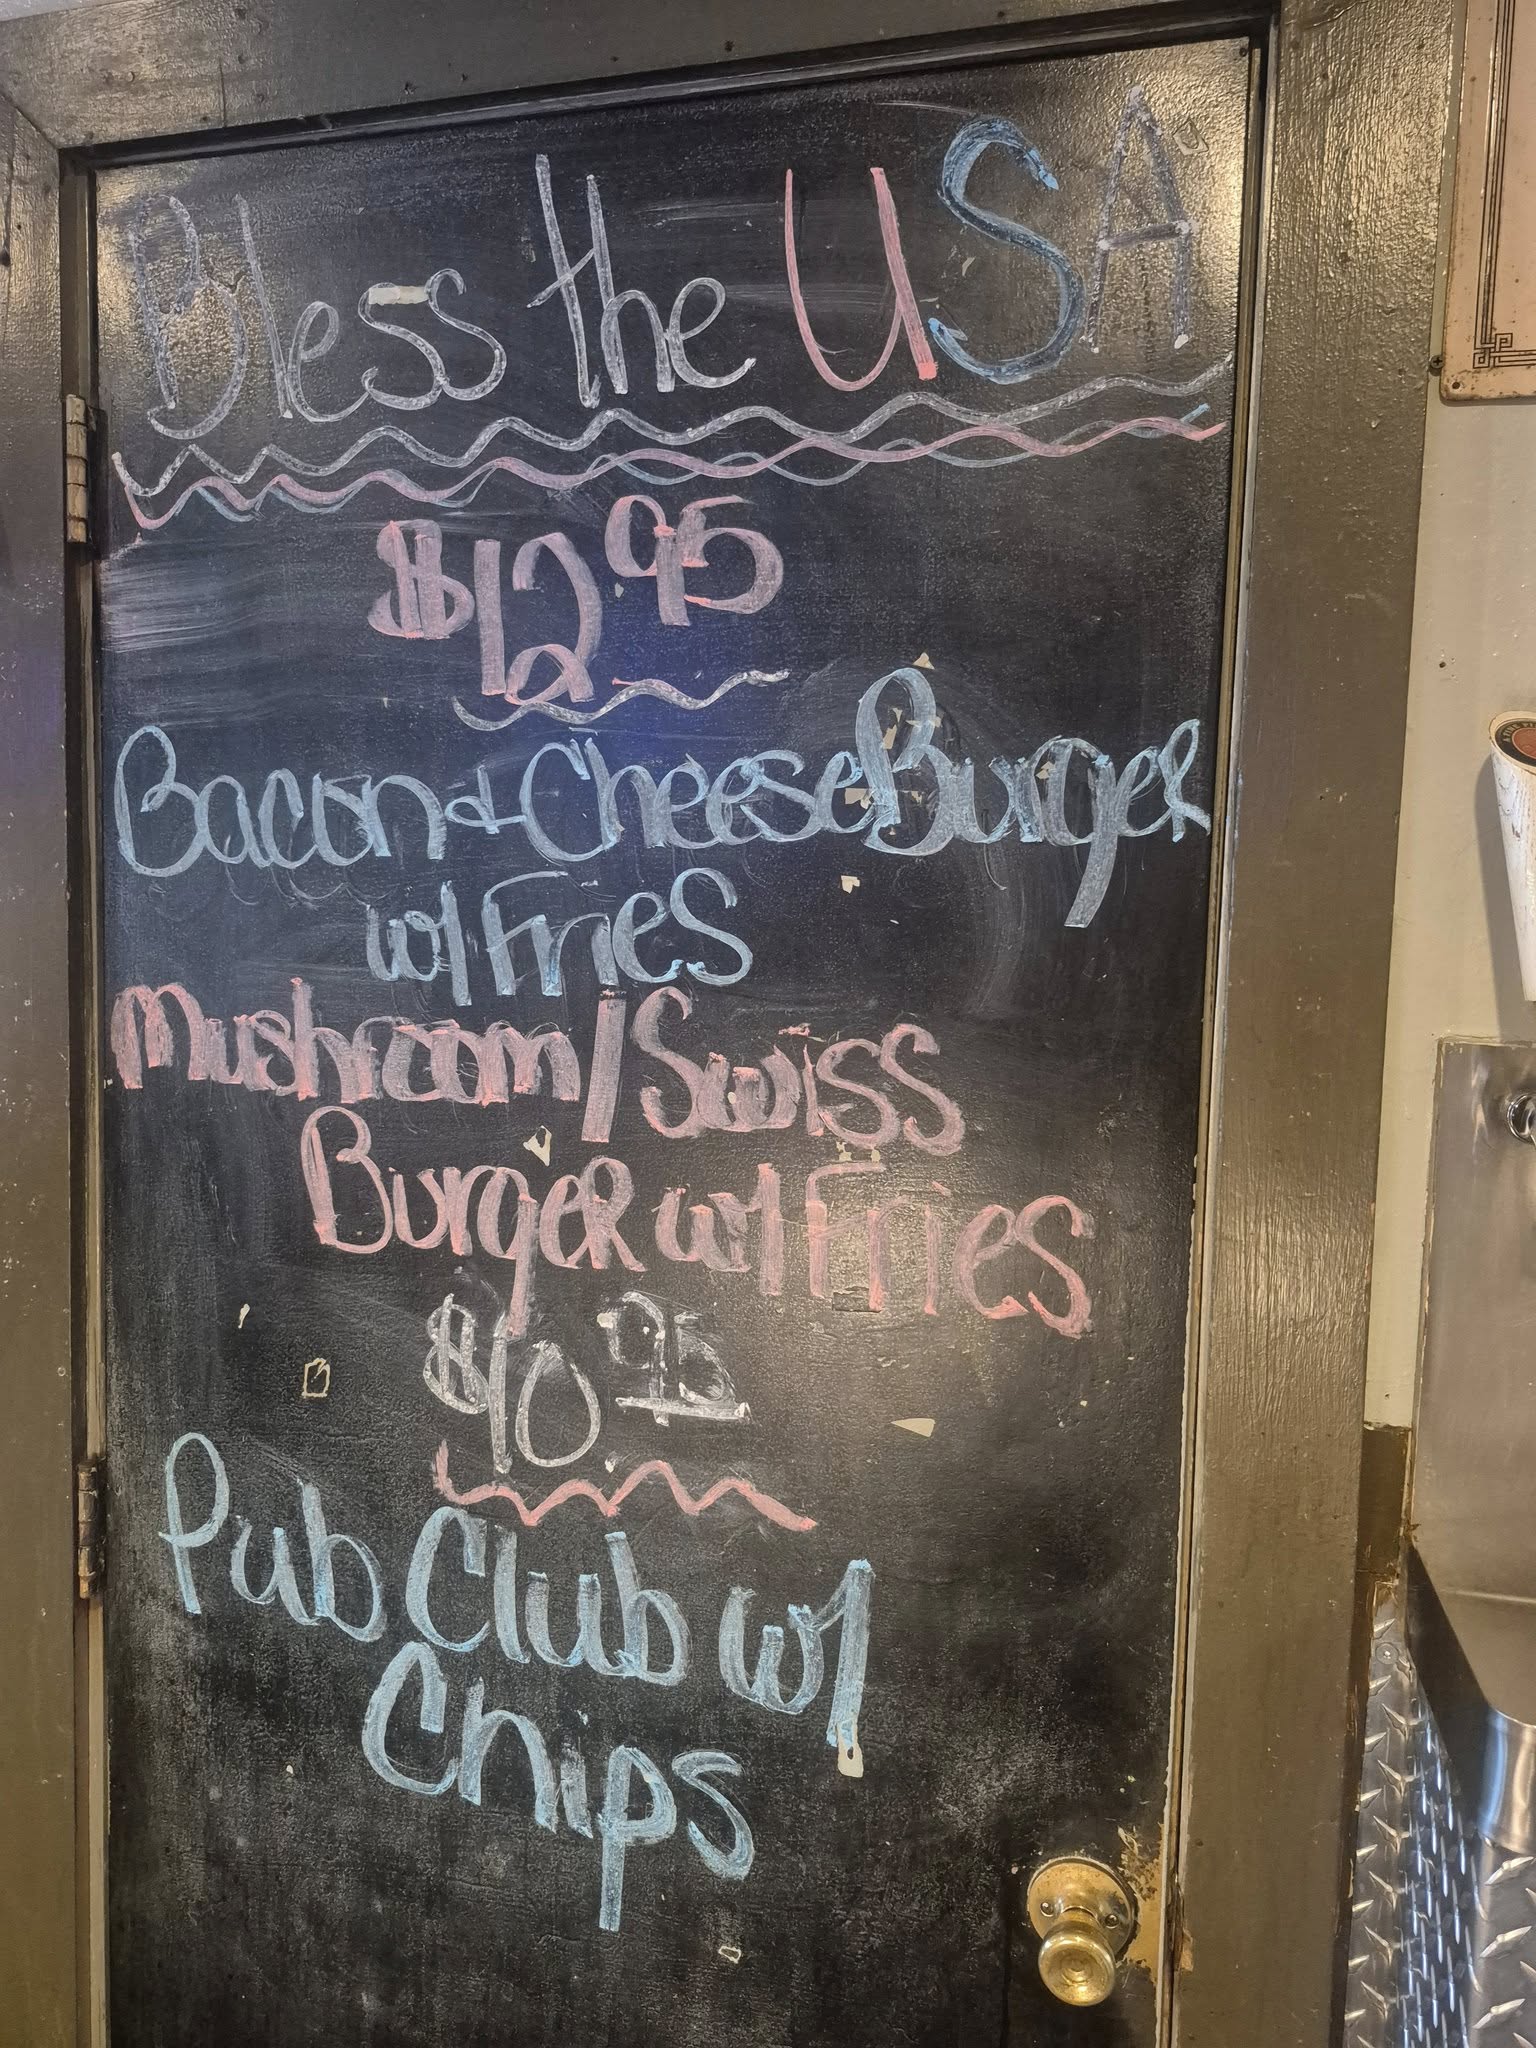 Bless the USA
$12.95
Bacon & CheeseBurger
w/ Fries
Mushroom/Swiss
Burger w/ Fries
$10.95
Pub Club w/
Chips